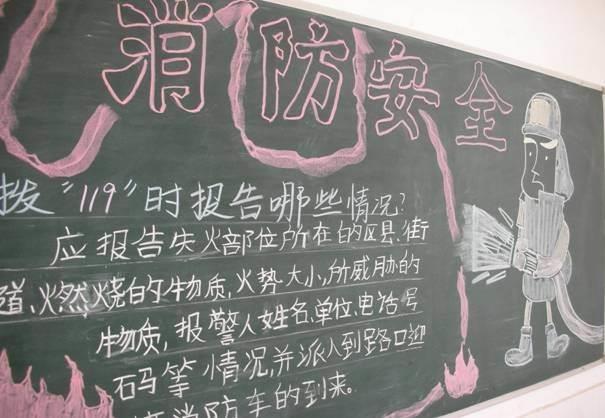 消防安全
拨“119”时报告哪些情况?
应报告失火部位所在的区县、街
道、燃烧的物质,火势大小,所威胁的
物质,报警人姓名、单位、电话号
码等情况,并派人到路口迎
接消防车的到来。